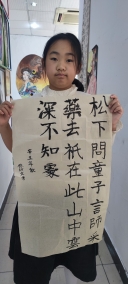 松下問童子言師采
藥去祇在此山中雲
深不知處